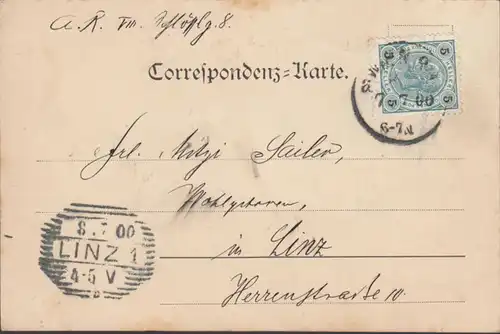 A. R. VIII. Schlößlg. 8.
Correspondenz-Karte.
5 5
5 5
7 7.00
6-7N
Frl. Mitzi Sailer,
Wohlgeboren,
in Linz
Herrenstraße 10.
8.7 00
LINZ 1
4-5 V